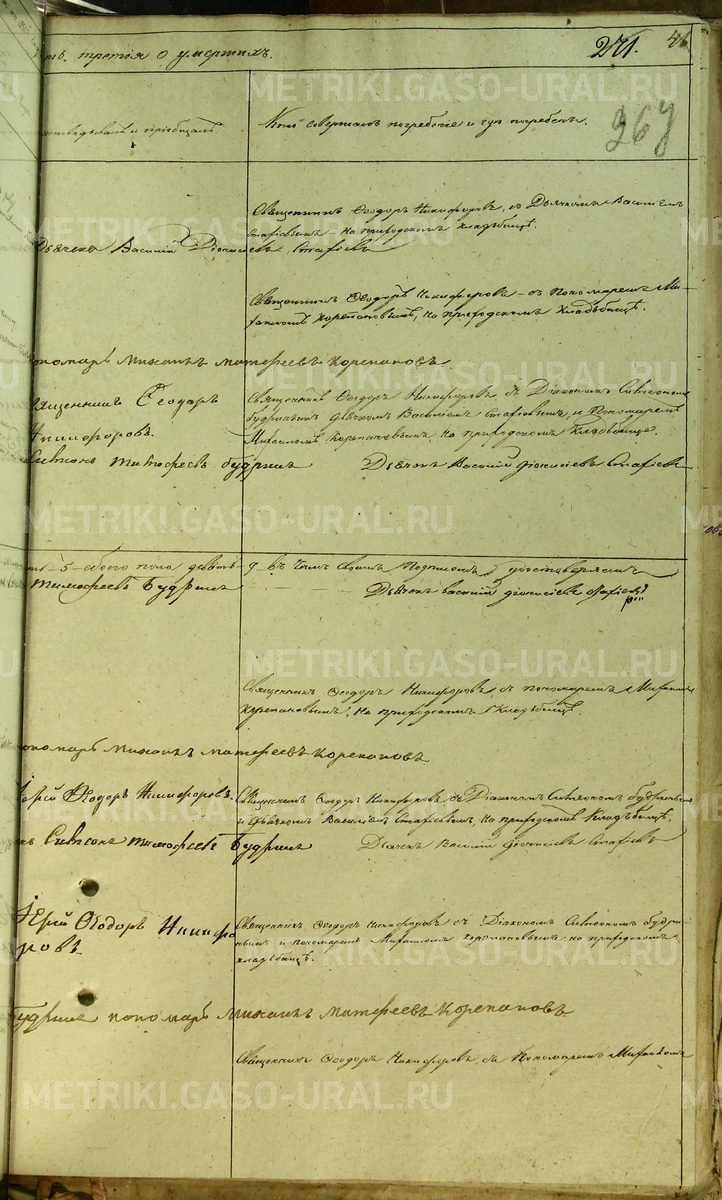 третія о умершихъ.
271.
267
исповѣдывалъ и пріобщалъ.
Кто совершалъ погребеніе и гдѣ погребены.
Священникъ Ѳеодоръ Никифоровъ, съ Дьячкомъ Василіемъ
Стафіевымъ – на приходскомъ кладбищѣ.
Дьячекъ Василій Діонисіевъ Стафіевъ
Священникъ Ѳеодоръ Никифоровъ – съ Пономаремъ Ми-
хаиломъ Корепановымъ, на приходскомъ кладбищѣ.
пономарь Михаилъ Матфеевъ Корепановъ
Священникъ Ѳеодоръ
Священникъ Ѳеодоръ Никифоровъ, съ Діакономъ Симеономъ
Будринымъ дьячкомъ Василіемъ Стафіевымъ, и Пономаремъ
Никифоровъ.
Михаиломъ Корепановымъ, на приходскомъ кладбищѣ.
Симеонъ Тимофеевъ Будринъ
Дьячекъ Василій Діонисіевъ Стафіевъ
5 – обоего пола девять – 9 въ чемъ своимъ Подписомъ удостовѣряемъ
Тимофеевъ Будринъ
Дьячекъ Василій Діонисіевъ Стафіевъ
Священникъ Ѳеодоръ Никифоровъ, съ пономаремъ Михаиломъ
Корепановымъ, на приходскомъ кладбищѣ.
пономарь Михаилъ Матфеевъ Корепановъ.
Іерей Ѳеодоръ Никифоровъ.
Священникъ Ѳеодоръ Никифоровъ, съ Діакономъ Симеономъ Будринымъ
и дьячкомъ Василіемъ Стафіевымъ, на приходскомъ кладбищѣ.
Симеонъ Тимофеевъ Будринъ
Дьячекъ Василій Діонисіевъ Стафіевъ
Іерей Ѳеодоръ Никифо
ровъ
Священникъ Ѳеодоръ Никифоровъ съ Діакономъ Симеономъ Будри-
нымъ и пономаремъ Михаиломъ Корепановымъ на приходскомъ
кладбищѣ.
Будринъ пономарь Михаилъ Матфеевъ Корепановъ.
Священникъ Ѳеодоръ Никифоровъ, съ Пономаремъ Михаиломъ
METRIKI.GASO-URAL.RU